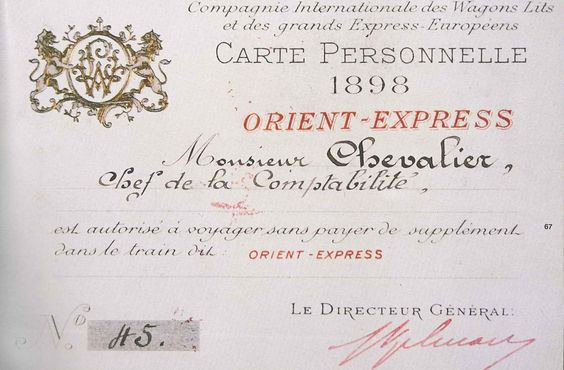 Compagnie Internationale des Wagons Lits
et des grands Express-Européens
CARTE PERSONNELLE
1898
ORIENT-EXPRESS
Monsieur Chevalier,
Chef de la Comptabilité,
est autorisé à voyager sans payer de supplément
dans le train dit: ORIENT-EXPRESS
67
LE DIRECTEUR GÉNÉRAL:
No 45.